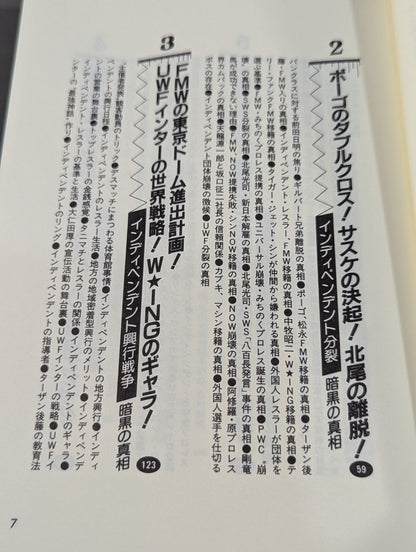 2
ポーゴのダブルクロス！サスケの決起！北尾の離脱！
インディペンデント分裂 暗黒の真相 59
バングラスに対する前田日明の焦り●ギルバート兄弟離脱の真相●ポーゴ、松永FMW移籍の真相●ターザン後
藤・FMW入りの真相●インディペンデント・レスラー、FMW移籍の真相●中牧昭二・W★ING移籍の真相●テ
リー・ファンクFMW移籍の真相●タイガー・ジェット・シンが仲間から嫌われる真相●外国人レスラーが団体を
選ぶ基準●FMW・みちのくプロレス提携の真相●ユニバーサル崩壊・みちのくプロレス誕生の真相●PWC〝崩
壊〟の真相●SWS分裂の真相●北尾光司・新日本解雇の真相●北尾光司・SWS〝八百長発言〟事件の真相●剛竜
馬が成功できない理由●FMW、NOW提携失敗・シンNOW移籍の真相●NOW崩壊の真相●阿修羅・原プロレス
界カムバックの真相●天龍源一郎と坂口征二社長の信頼関係●カブキ、マシン移籍の真相●外国人選手を仕切る
ボスの存在●インディペンデント団体崩壊の徴候●UWF分裂の真相
3
FMWの東京ドーム進出計画！
UWFインターの世界戦略！W★INGのギャラ！
インディペンデント興行戦争 暗黒の真相 123
主催者発表〝観客動員のトリック●デスマッチにまつわる体育館事情●インディペンデントの地方興行●インディ
ペンデントの興行日程●インディペンデント・レスラー生活●地方の地域密着型興行のメリット●インディペンデ
ントの営業の舞台裏●トップレスラーの金銭感覚●タニマチとレスラーの関係●インディペンデントのギャラ●イ
ンディペンデント・レスラーの基準と生活●大仁田厚の宣伝活動の舞台裏●UWFインターの戦略●UWFイ
ンターの〝最強神話〟作り●インディペンデントのリング●インディペンデントの指導者●ターザン後藤の教育法
7